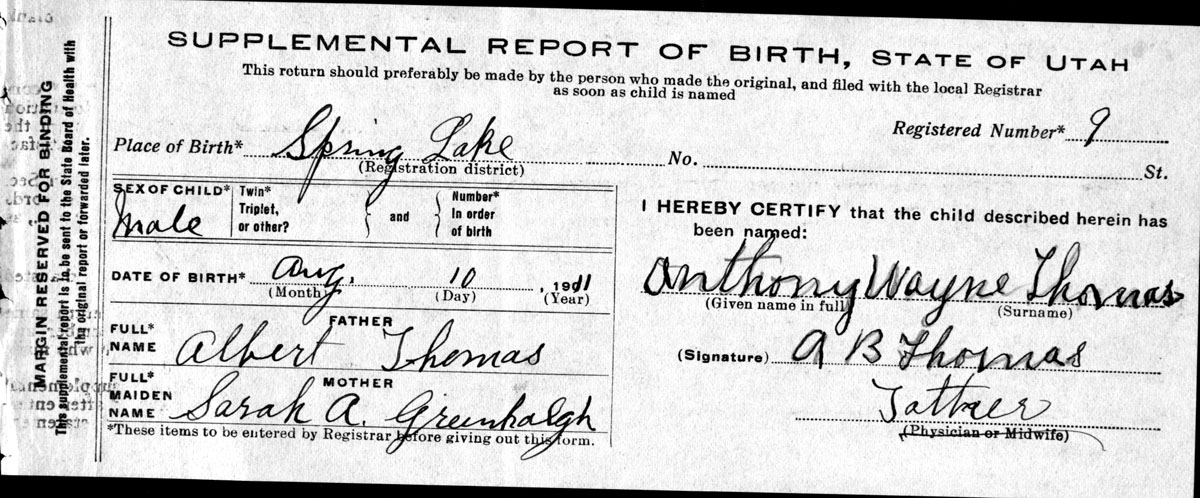 SUPPLEMENTAL REPORT OF BIRTH, STATE OF UTAH
This return should preferably be made by the person who made the original, and filed with the local Registrar
as soon as child is named
Registered Number* 9
Place of Birth* Spring Lake No. St.
(Registration district)
SEX OF CHILD* male
Twin* Triplet, or other?
and
Number* In order of birth
DATE OF BIRTH* Aug. 10, 1911
(Month) (Day) (Year)
FATHER
FULL* NAME Albert Thomas
MOTHER
FULL* MAIDEN NAME Sarah A. Greenhalgh
*These items to be entered by Registrar before giving out this form.
I HEREBY CERTIFY that the child described herein has
been named:
Anthony Wayne Thomas
(Given name in full) (Surname)
(Signature) A B Thomas
Father
(Physician or Midwife)
MARGIN RESERVED FOR BINDING
This supplemental report is to be sent to the State Board of Health with
the original report or forwarded later.